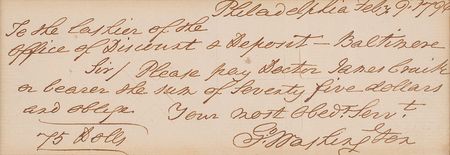 Philadelphia Feby. 9. 1796
To the Cashier of the
Office of Discount & Deposit – Baltimore
Sir/ Please pay Doctor James Craik
or bearer the sum of Seventy five dollars
and oblige Your most Obedt. Servt.
75 Dolls Go: Washington